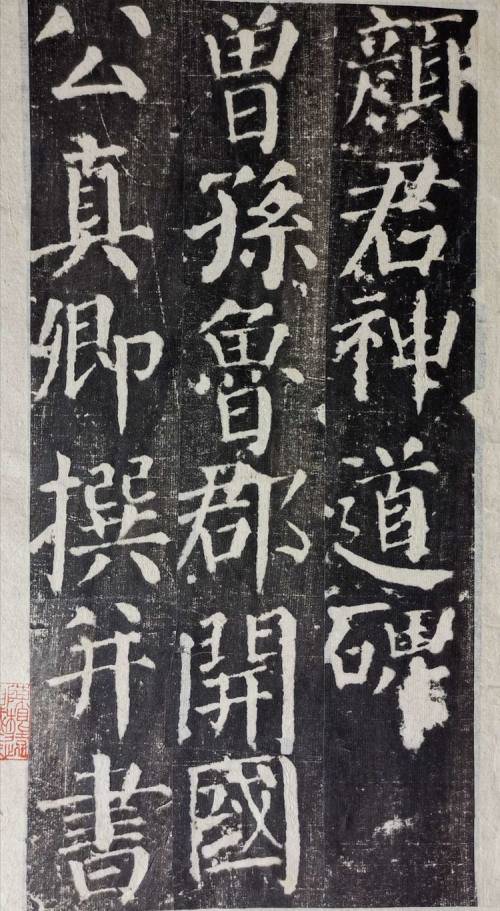 顏君神道碑
曾孫魯郡開國
公真卿撰并書